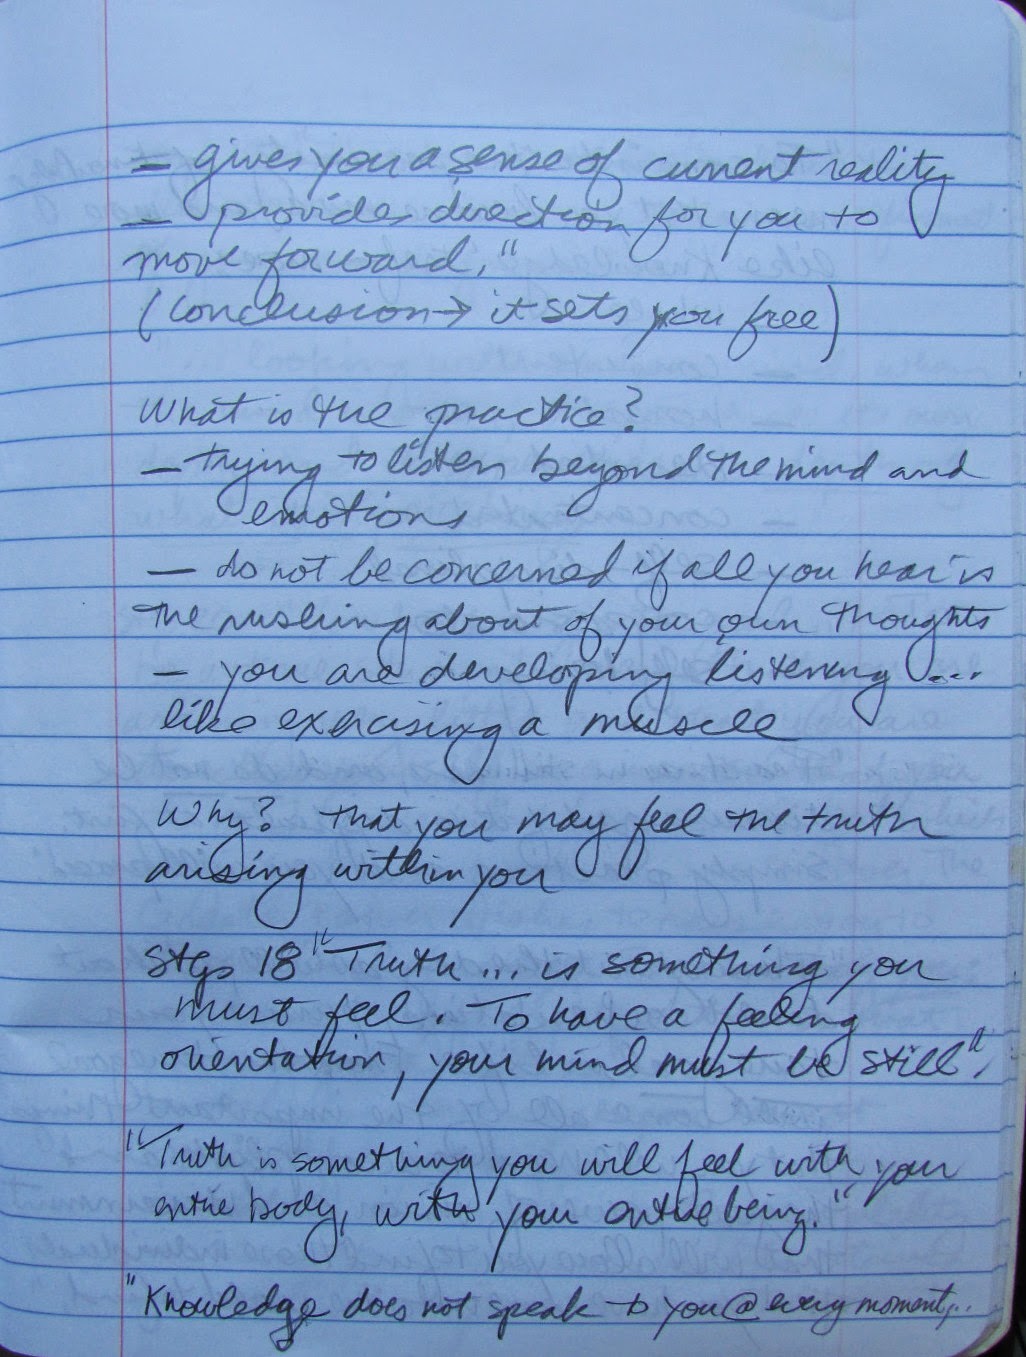 – gives you a sense of current reality
– provides direction for you to
move forward."
(Conclusion → it sets you free)
What is the practice?
– trying to "listen beyond the mind and
emotions
– do not be concerned if all you hear is
the rushing about of your own thoughts
– you are developing listening ...
like exercising a muscle
Why? that you may feel the truth
arising within you
Step 18 "Truth ... is something you
must feel. To have a feeling
orientation, your mind must be still".
"Truth is something you will feel with your
entire body, with your entire being."
"Knowledge does not speak to you @ every moment,..